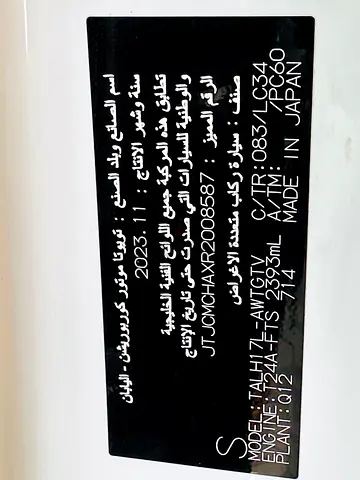 اسم الصانع وبلد الصنع : تويوتا موتور كوربوريشن - اليابان
سنة وشهر الانتاج : 2023.11
تطابق هذه المركبة جميع اللوائح الفنية الخليجية
والوطنية للسيارات التي صدرت حتى تاريخ الإنتاج
الرقم المميز : JTJCMCHAXR2008587
صنف : سيارة ركاب متعددة الاغراض
S
MODEL:TALH17L-AWTGTV C/TR:083/LC34
ENGINE:T24A-FTS 2393mL A/TM: /PC60
PLANT:Q12 714 MADE IN JAPAN